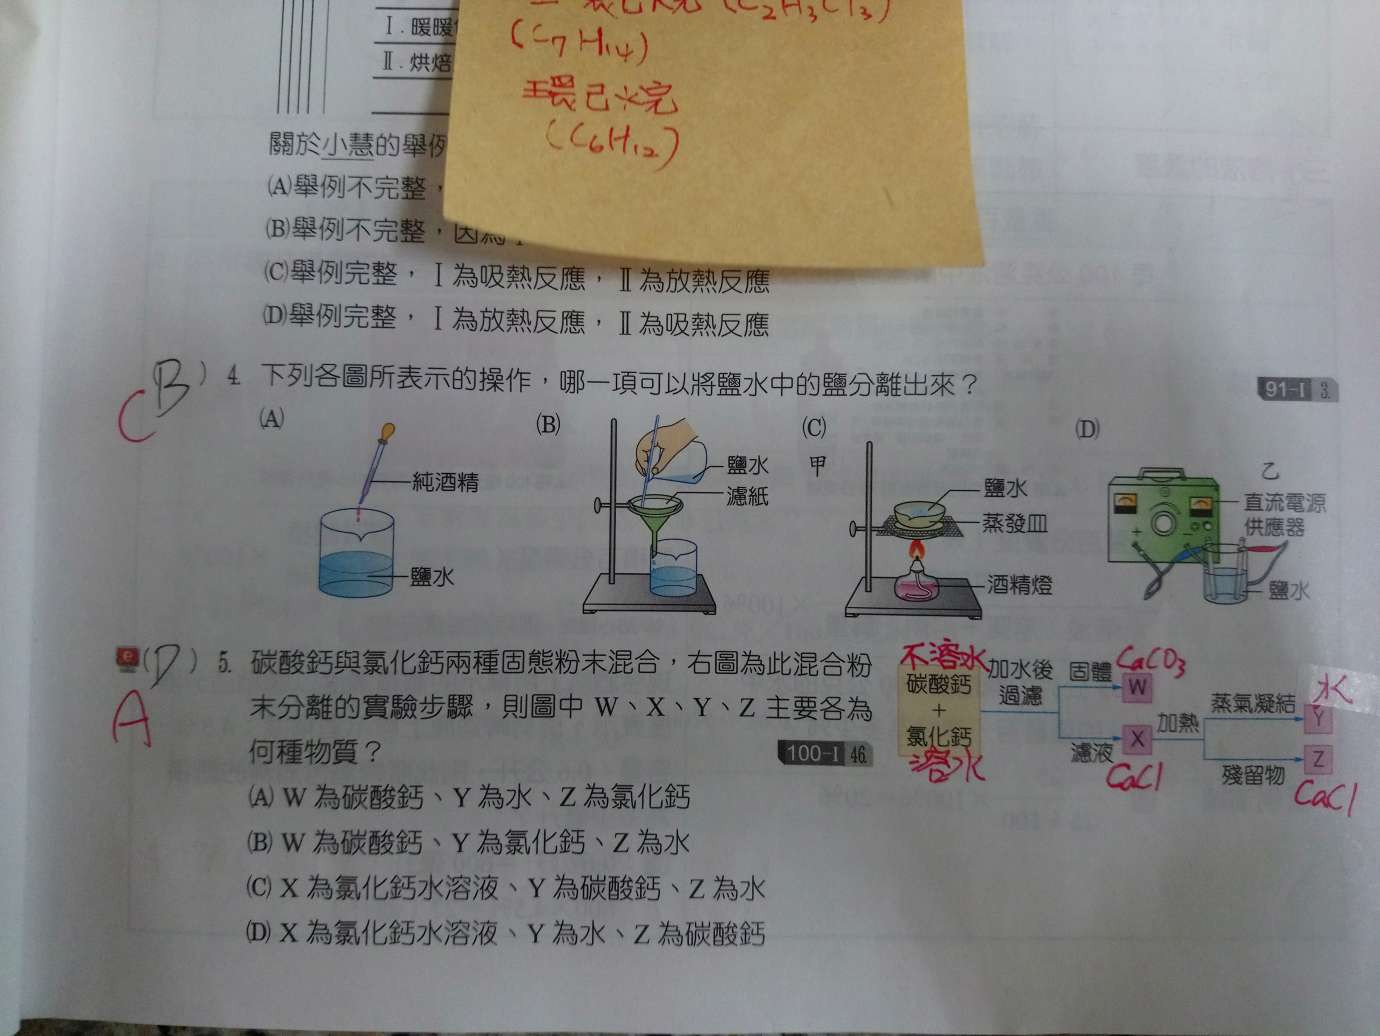 (C₇H₁₄)
環己烷
(C₆H₁₂)
Ⅰ.暖暖
Ⅱ.烘焙
關於小慧的舉例
(A)舉例不完整，
(B)舉例不完整，因為
(C)舉例完整，Ⅰ為吸熱反應，Ⅱ為放熱反應
(D)舉例完整，Ⅰ為放熱反應，Ⅱ為吸熱反應
C (B) 4. 下列各圖所表示的操作，哪一項可以將鹽水中的鹽分離出來？ 91-Ⅰ 3.
(A) (B) (C) (D)
甲
乙
純酒精
鹽水
鹽水
濾紙
鹽水
蒸發皿
酒精燈
直流電源
供應器
鹽水
A (D) 5. 碳酸鈣與氯化鈣兩種固態粉末混合，右圖為此混合粉
末分離的實驗步驟，則圖中 W、X、Y、Z 主要各為
何種物質？ 100-Ⅰ 46.
(A) W 為碳酸鈣、Y 為水、Z 為氯化鈣
(B) W 為碳酸鈣、Y 為氯化鈣、Z 為水
(C) X 為氯化鈣水溶液、Y 為碳酸鈣、Z 為水
(D) X 為氯化鈣水溶液、Y 為水、Z 為碳酸鈣
不溶水
碳酸鈣
+
氯化鈣
溶水
加水後
過濾
固體
CaCO₃
W
濾液
X
CaCl
加熱
蒸氣凝結
水
Y
殘留物
Z
CaCl